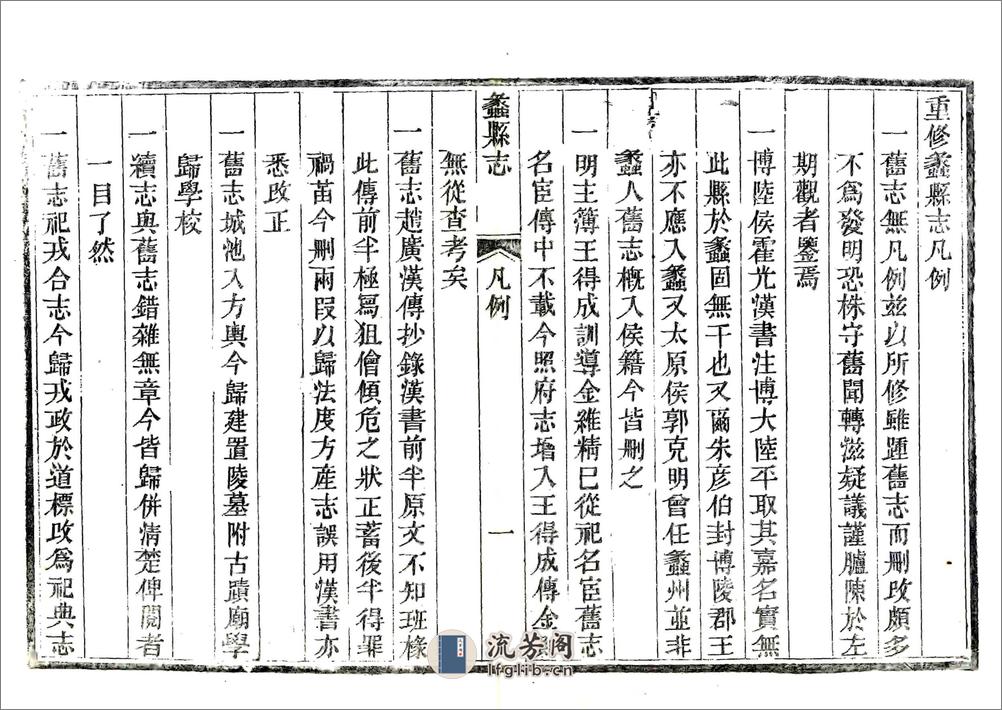 重修蠡縣志凡例
一舊志無凡例兹以所修雖踵舊志而刪改頗多
不爲發明恐株守舊聞轉滋疑議謹臚陳於左
期觀者鑒焉
一博陸侯霍光漢書注博大陸平取其嘉名實無
此縣於蠡固無干也又爾朱彦伯封博陵郡王
亦不應入蠡又太原侯郭克明曾任蠡州並非
蠡人舊志概入侯籍今皆刪之
一明主簿王得成訓導金維精已從祀名宦舊志
名宦傳中不載今照府志增入王得成傳金
無從查考矣
蠡縣志
凡例
一
一舊志趙廣漢傳抄錄漢書前半原文不知班椽
此傳前半極寫狙儈傾危之狀正蓄後半得罪
禍苗今刪兩段以歸法度方產志誤用漢書亦
悉改正
一舊志城池入方輿今歸建置陵墓附古蹟廟學
歸學校
一續志與舊志錯雜無章今皆歸併清楚俾閱者
一目了然
一舊志祀戎合志今歸戎政於道標改爲祀典志
流芳阁
lfglib.cn